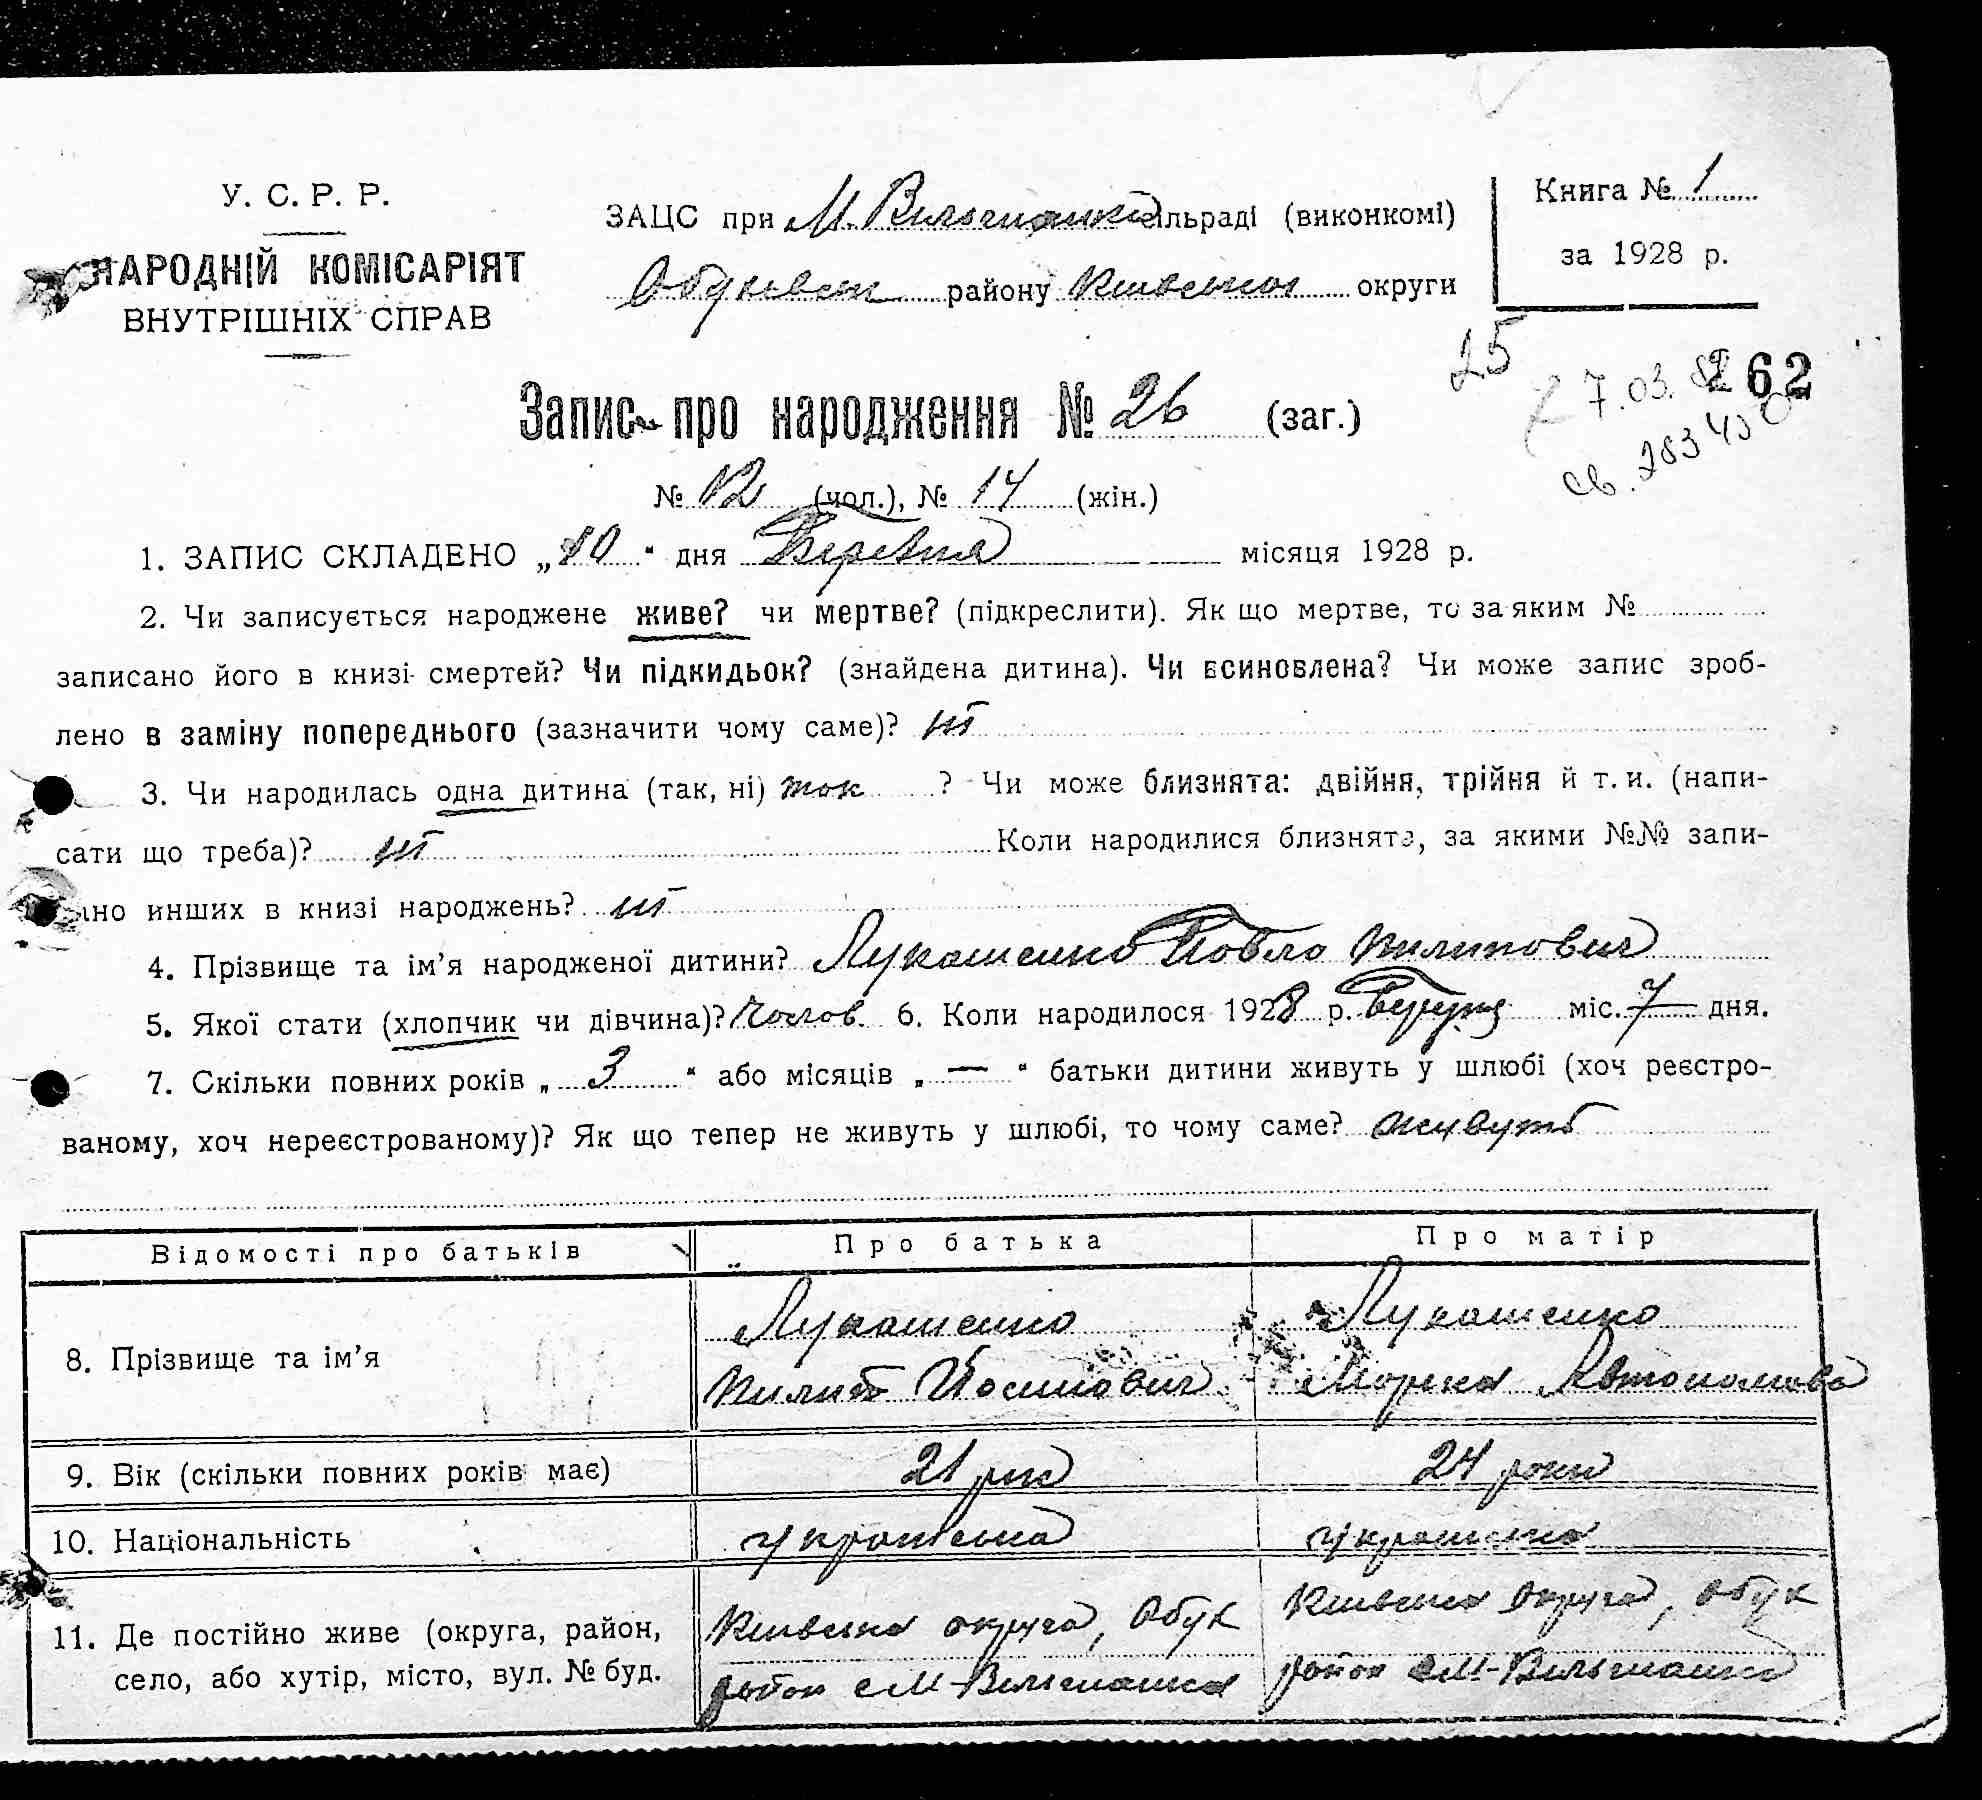 У. С. Р. Р.
НАРОДНІЙ КОМІСАРІЯТ
ВНУТРІШНІХ СПРАВ
ЗАЦС при М. Вільшанській сільраді (виконкомі)
Обухівськ району Київської округи
Книга № 1
за 1928 р.
25
262
7.03.
св. 283450
Запис про народження № 26 (заг.)
№ 12 (чол.), № 14 (жін.)
1. ЗАПИС СКЛАДЕНО „10“ дня Березня місяця 1928 р.
2. Чи записується народжене живе? чи мертве? (підкреслити). Як що мертве, то за яким №
записано його в книзі смертей? Чи підкидьок? (знайдена дитина). Чи всиновлена? Чи може запис зроб-
лено в заміну попереднього (зазначити чому саме)? ні
3. Чи народилась одна дитина (так, ні) так ? Чи може близнята: двійня, трійня й т. и. (напи-
сати що треба)? ні Коли народилися близнята, за якими №№ запи-
ано инших в книзі народжень? ні
4. Прізвище та ім’я народженої дитини? Лукашенко Павло Пилипович
5. Якої стати (хлопчик чи дівчина)? Чолов. 6. Коли народилося 1928 р. Березня міс. 7 дня.
7. Скільки повних років „ 3 “ або місяців „ — “ батьки дитини живуть у шлюбі (хоч реєстро-
ваному, хоч нереєстрованому)? Як що тепер не живуть у шлюбі, то чому саме? живуть
Відомості про батьків Про батька Про матір
8. Прізвище та ім’я
Лукашенко
Пилип Йосипович
Лукашенко
Марія Автономова
9. Вік (скільки повних років має) 21 рік 24 роки
10. Національність українська українка
11. Де постійно живе (округа, район,
село, або хутір, місто, вул. № буд.
Київська округа, Обух
район с М-Вільшанка
Київська округа, Обух
район с М-Вільшанка